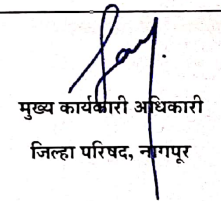 मुख्य कार्यकारी अधिकारी
जिल्हा परिषद, नागपूर